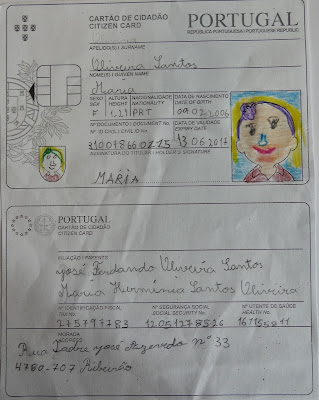 CARTÃO DE CIDADÃO
CITIZEN CARD
PORTUGAL
REPÚBLICA PORTUGUESA | PORTUGUESE REPUBLIC
APELIDO(S) | SURNAME
Oliveira Santos
NOME(S) | GIVEN NAME
Maria
SEXO ALTURA NACIONALIDADE DATA DE NASCIMENTO
SEX HEIGHT NATIONALITY DATE OF BIRTH
F 1,21 PRT 09 02 2006
Nº DOCUMENTO | DOCUMENT No. DATA DE VALIDADE
EXPIRY DATE
31007866 0ZZ5 13 06 2017
ASSINATURA DO TITULAR | HOLDER'S SIGNATURE
MARIA
PORTUGAL
CARTÃO DE CIDADÃO
CITIZEN CARD
FILIAÇÃO | PARENTS
José Fernando Oliveira Santos
Maria Hermínia Santos Oliveira
Nº IDENTIFICAÇÃO FISCAL Nº SEGURANÇA SOCIAL Nº UTENTE DE SAÚDE
TAX No. SOCIAL SECURITY No. HEALTH No.
275797783 12051278526
MORADA
ADDRESS
Rua Padre José Azevedo nº 33
4760-707 Ribeirão